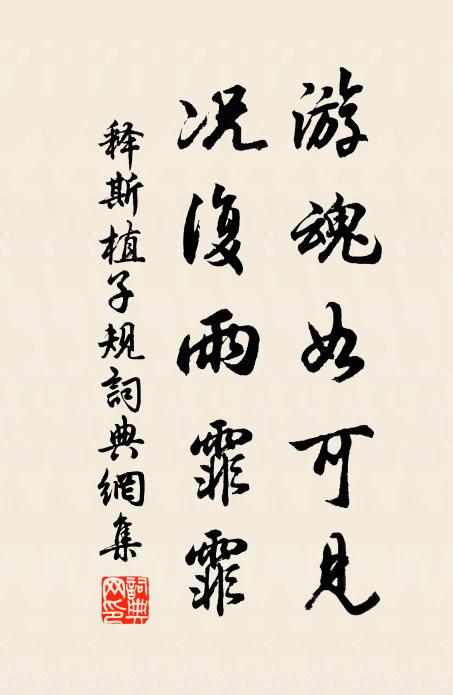 游魂如可見
况復雨霏霏
释斯植子規詞典網集
詞典網印